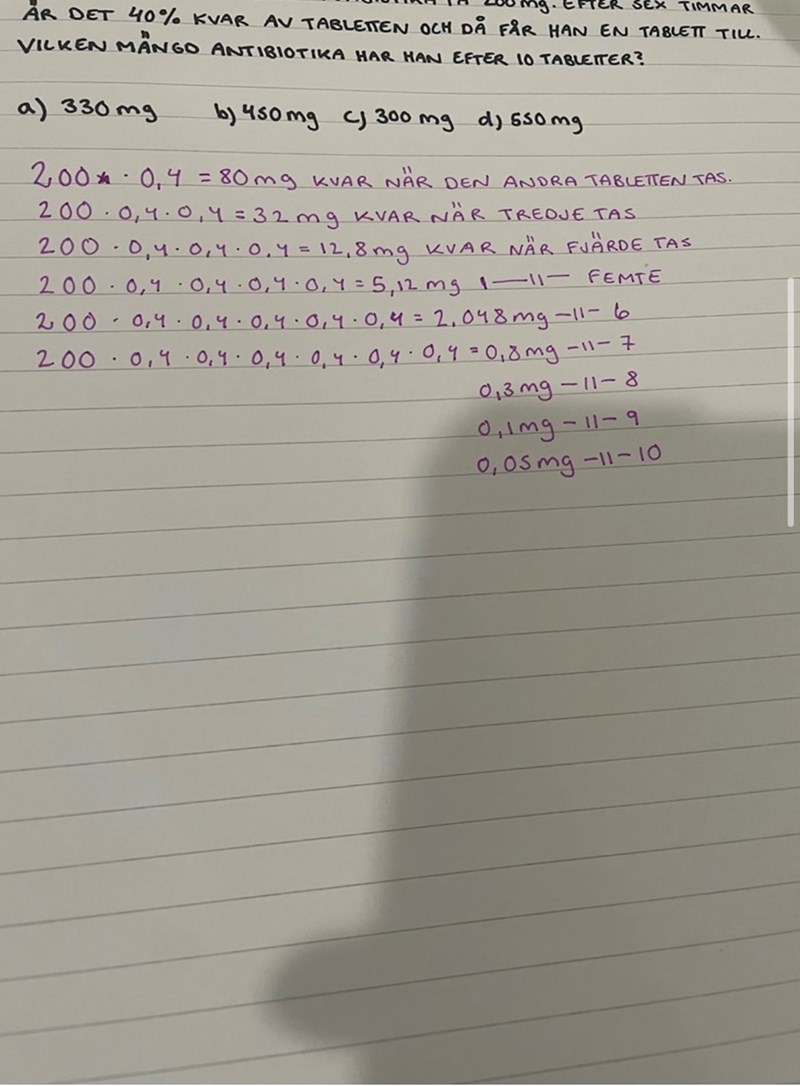 200 mg. EFTER SEX TIMMAR
ÄR DET 40% KVAR AV TABLETTEN OCH DÅ FÅR HAN EN TABLETT TILL.
VILKEN MÄNGD ANTIBIOTIKA HAR HAN EFTER 10 TABLETTER?
a) 330 mg b) 450 mg c) 300 mg d) 550 mg
200 · 0,4 = 80 mg KVAR NÄR DEN ANDRA TABLETTEN TAS.
200 · 0,4 · 0,4 = 32 mg KVAR NÄR TREDJE TAS
200 · 0,4 · 0,4 · 0,4 = 12,8 mg KVAR NÄR FJÄRDE TAS
200 · 0,4 · 0,4 · 0,4 · 0,4 = 5,12 mg —11— FEMTE
200 · 0,4 · 0,4 · 0,4 · 0,4 · 0,4 = 2,048 mg -11- 6
200 · 0,4 · 0,4 · 0,4 · 0,4 · 0,4 · 0,4 = 0,8 mg -11- 7
0,3 mg -11- 8
0,1 mg -11- 9
0,05 mg -11- 10